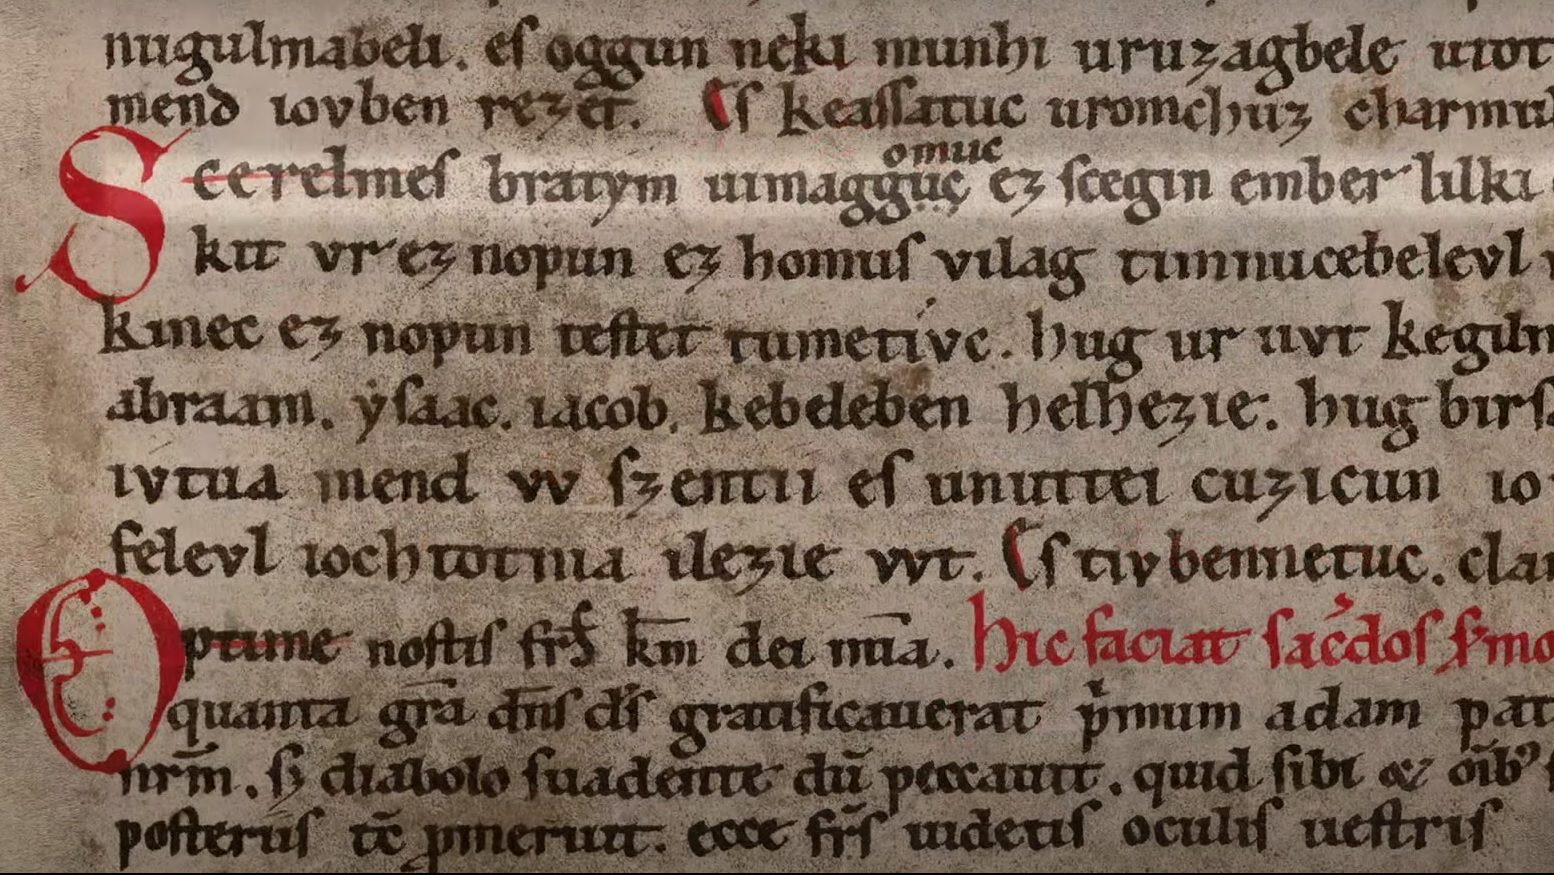 nugulmabeli. es oggun neki munhi uruzagbele utot
mend iovben rezet. Es keassatuc uromchuz charmul
omuc
Scerelmes bratym uimagguc ez scegin ember lilki
kit vr ez nopun ez homus vilag timnucebelevl
kinec ez nopun testet tumetivc. hug ur uvt kegiln
abraam. ysaac. iacob. kebeleben helhezie. hug birsa
ivtua mend vv szentii es unuttei cuzicun io
felevl iochtotnia ilezie vvt. Es tivbennetuc. clam
Optime nostis frs km dei mia. hic faciat sacdos smo
quanta gra dns ds gratificauerat pmum adam pat
nrm. s diabolo suadente du peccauit. quid sibi & oib
posteriis te pmeruit. ecce frs uidetis oculis uestris